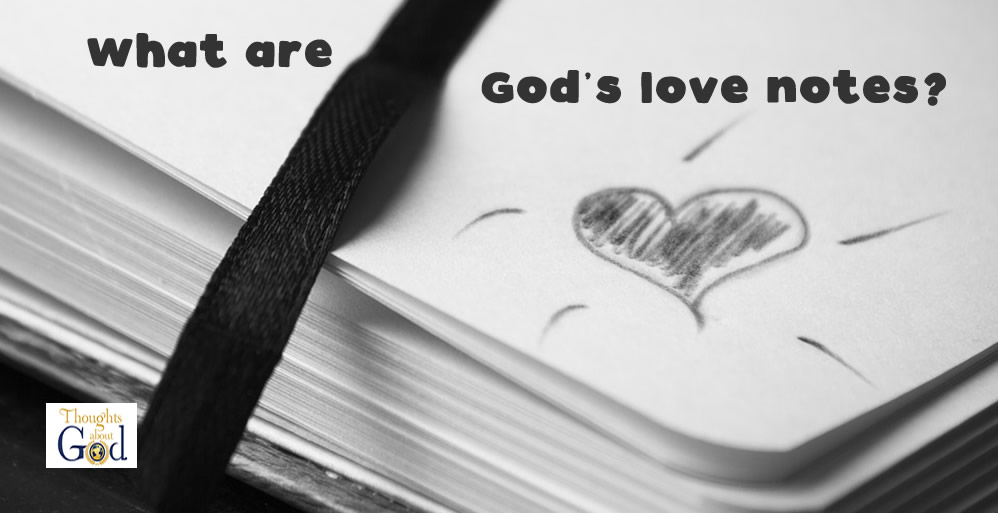 What are
God's love notes?
Thoughts
about
God